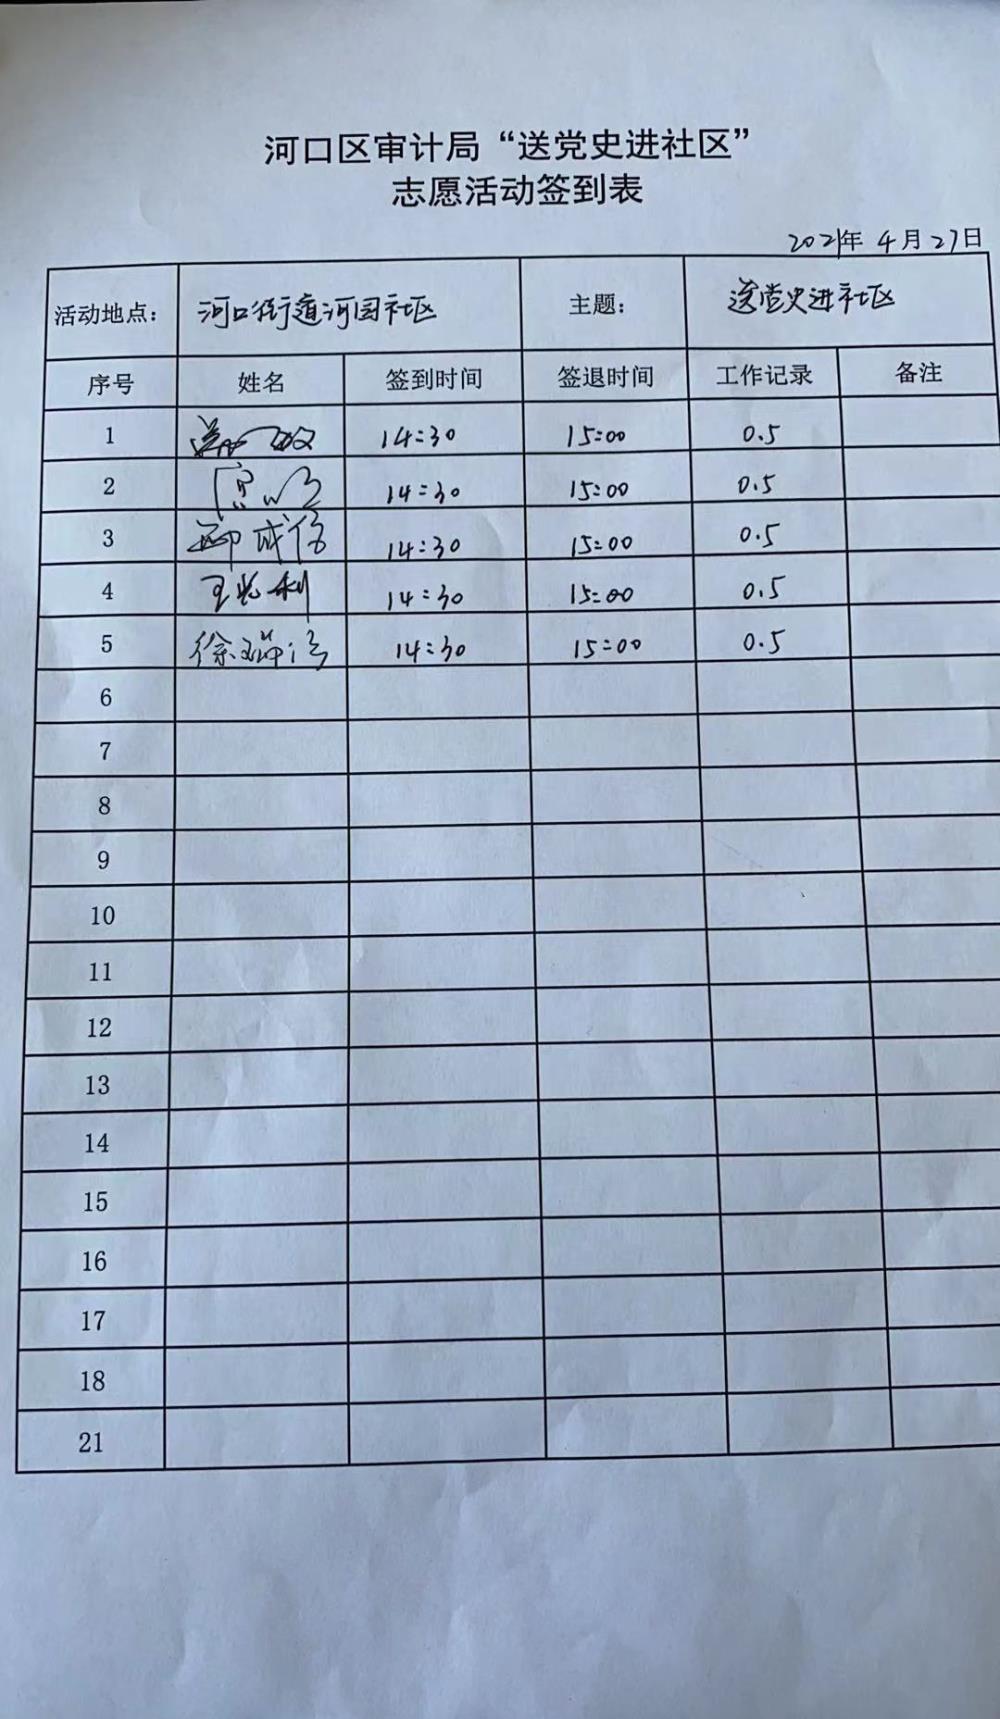 河口区审计局“送党史进社区”
志愿活动签到表
2021年 4月27日
活动地点： 河口街道河园社区 主题： 送党史进社区
序号 姓名 签到时间 签退时间 工作记录 备注
1 14:30 15:00 0.5
2 14:30 15:00 0.5
3 14:30 15:00 0.5
4 14:30 15:00 0.5
5 14:30 15:00 0.5
6
7
8
9
10
11
12
13
14
15
16
17
18
21